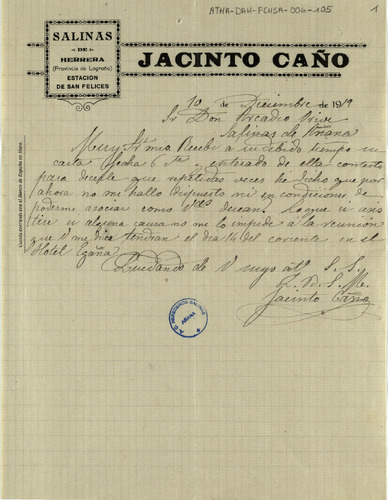 ATHA-DAH-FCHSA-006-105
1
SALINAS
DE
HERRERA
(Provincia de Logroño)
ESTACION
DE SAN FELICES
JACINTO CAÑO
10 de Diciembre de 1919
Sr Don Arcadio
Salinas de Añana
Muy Sr mio Recibi a su debido tiempo su
carta fecha 6 y enterado de ella contesto
para decirle que repetidas veces he dicho que por
ahora no me hallo dispuesto ni en condiciones de
poderme asociar como Vds desean. Lo que si asis
tire si alguna causa no me lo impide a la reunion
que V me dice tendran el dia 14 del corriente en el
Hotel
Quedando de V suyo att S. S.
Q. B. S. M.
Jacinto Caño
AÑANA